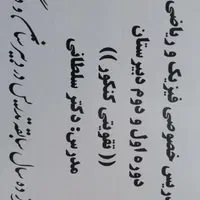 تدریس خصوصی فیزیک و ریاضی
دوره اول و دوم دبیرستان
(( تقویتی کنکور ))
مدرس: دکتر سلطانی
ده سال سابقه تدریس در